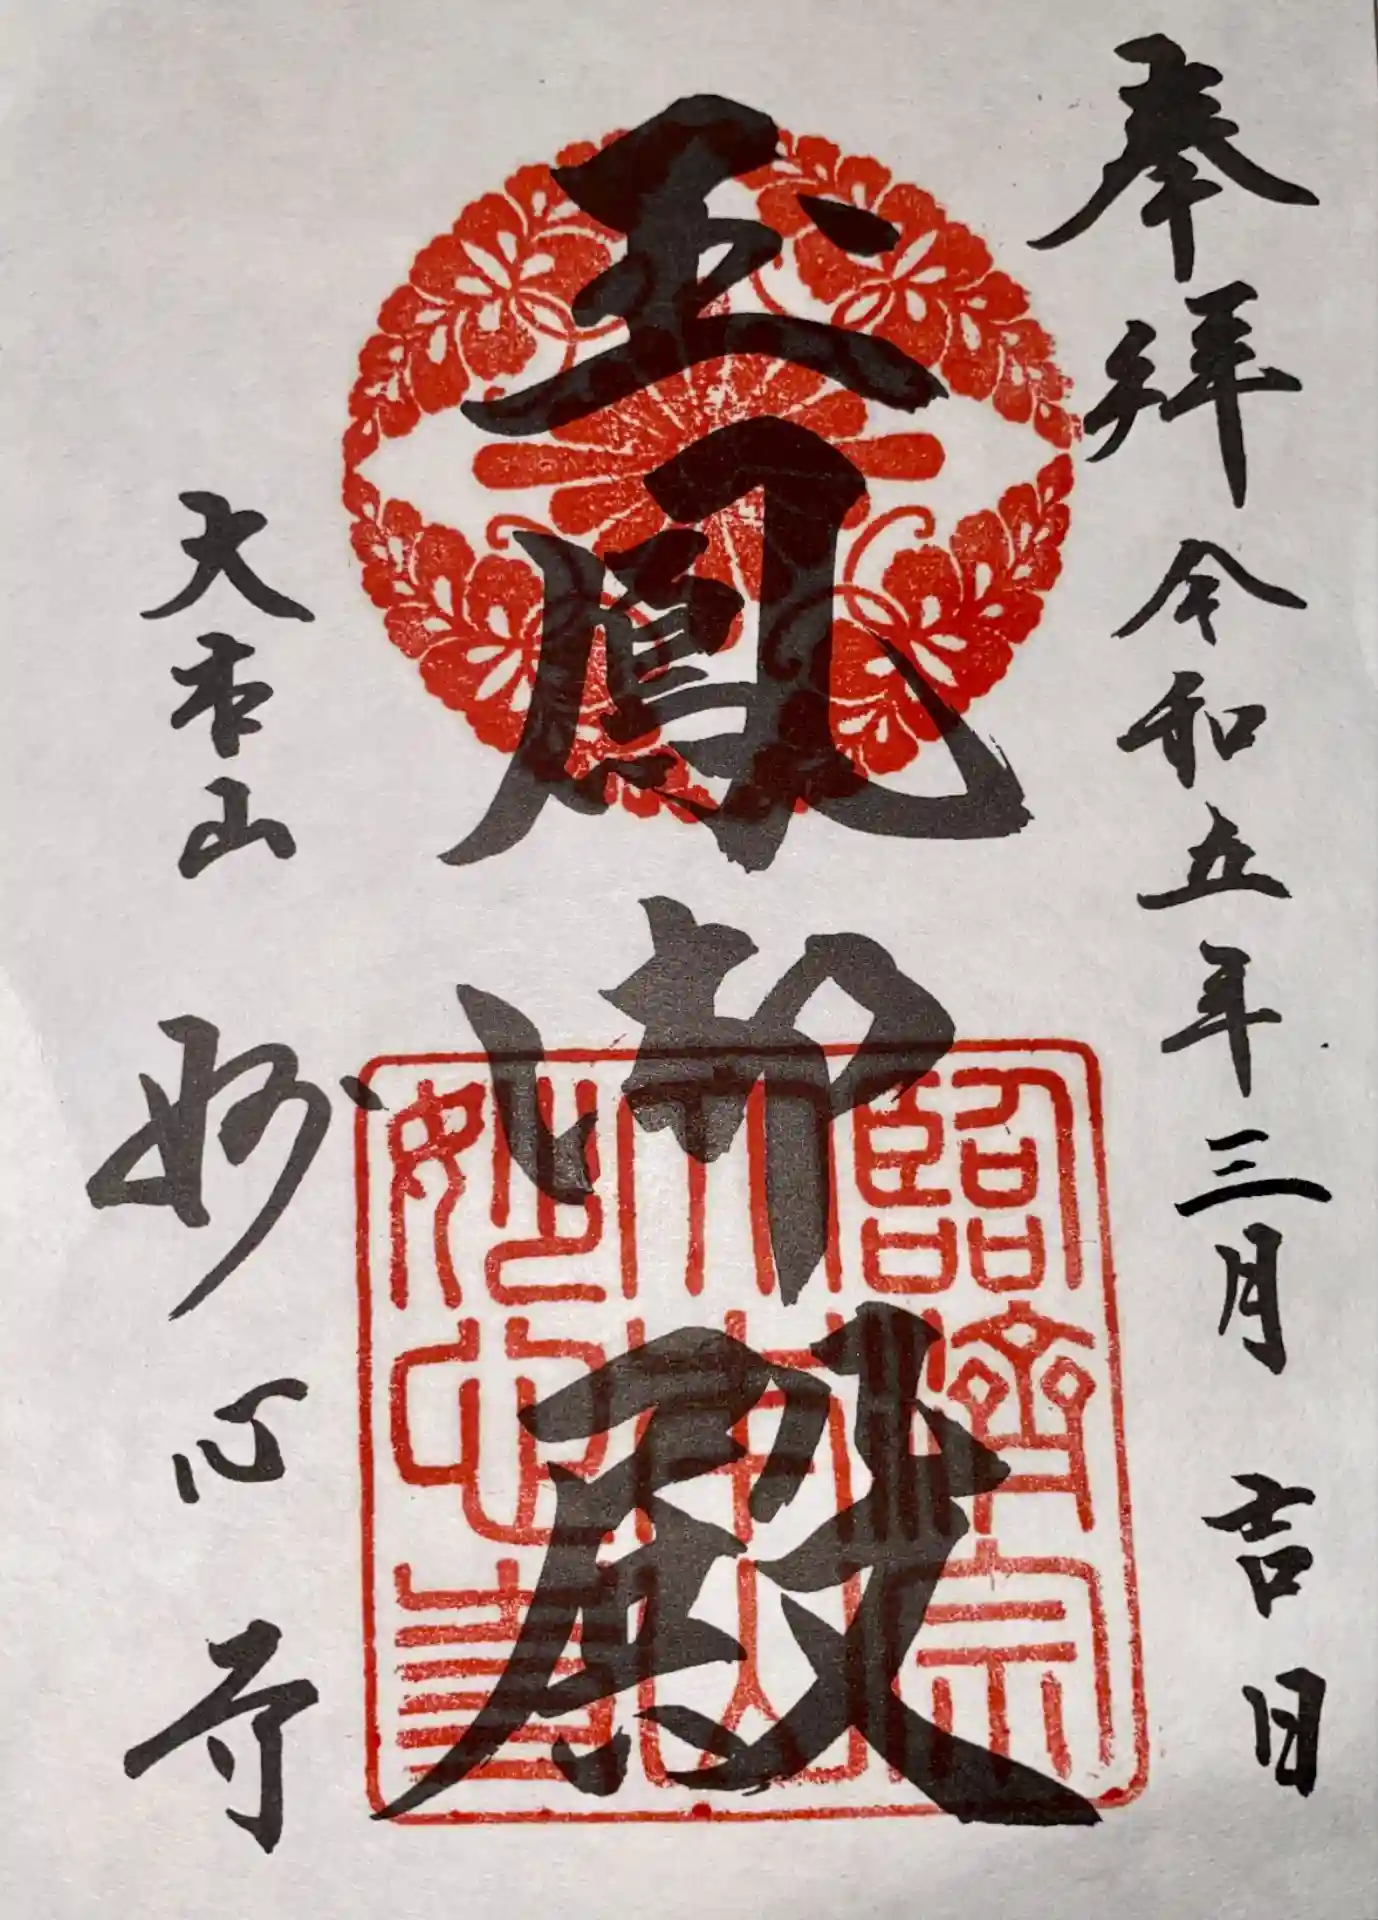 奉拝 令和五年三月 吉日
玉鳳御殿
大本山 妙心寺
臨済宗
大本山
妙心寺